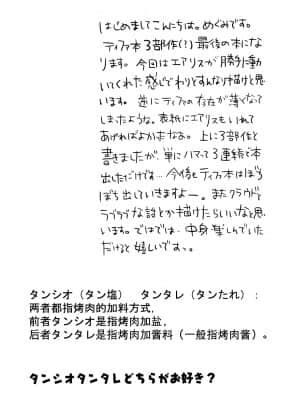 はじめましてこんにちは。めぐみです。
ティファ本3部作(?)最後の本にな
ります。今回はエアリスが勝手に動
いてくれた感じでわりとすんなり描けたと思
います。逆にティファの存在が薄くなって
しまったような。表紙にエアリスもいれて
あげればよかったなぁ。上に3部作と
書きましたが、単にハマって3連続で本
出しただけです…今後もティファ本はぼち
ぼち出していきますよー。またクラウドと
ラブラブな話とか描けたらいいなと思
います。ではでは、中身楽しんでいた
だけると嬉しいですっ。
タンシオ（タン塩）　タンタレ（タンたれ）：
两者都指烤肉的加料方式,
前者タンシオ是指烤肉加盐,
后者タンタレ是指烤肉加酱料（一般指烤肉酱）。
タンシオタンタレどちらがお好き？